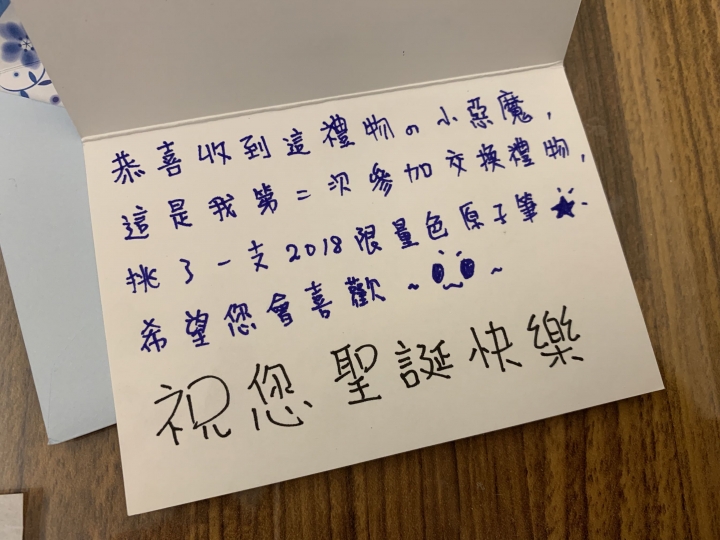 恭喜收到這禮物の小惡魔，
這是我第二次參加交換禮物，
挑了一支2018限量色原子筆★
希望您會喜歡~ ~
祝您聖誕快樂